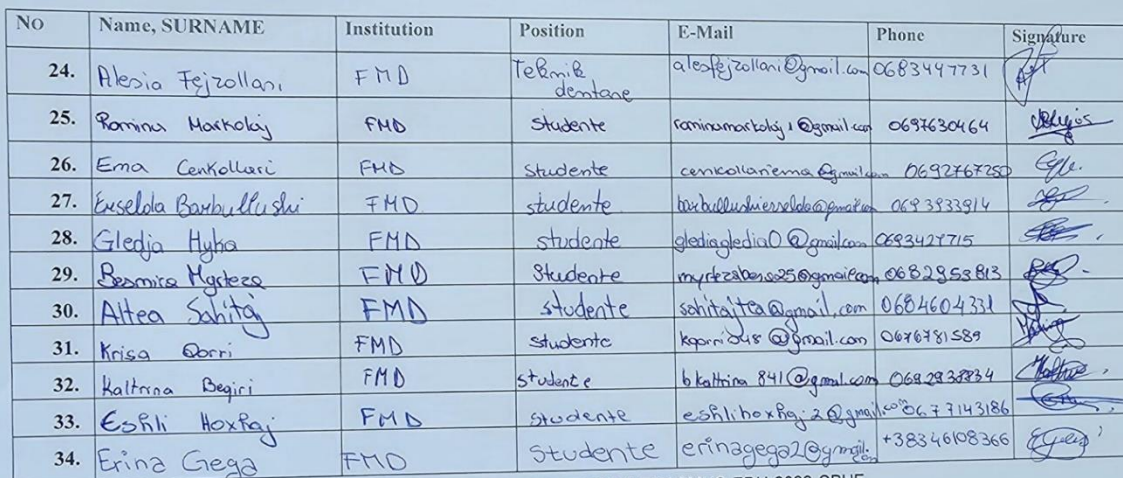 NO Name, SURNAME Institution Position E-Mail Phone Signature
24. Alesia Fejzollari FMD Teknik dentare alesfejzollari@gmail.com 0683447731
25. Romina Markolaj FMD Studente rominamarkolaj1@gmail.com 0697630464
26. Ema Cenkollari FMD Studente cenkollariema@gmail.com 0692767250
27. Erselda Barbullushi FMD studente barbullushierselda@gmail.com 0693933914
28. Gledja Hyka FMD studente glediagledia0@gmail.com 0693427715
29. Besmira Myrteza FMD Studente 0682953813
30. Altea Sahitaj FMD studente sahitajtea@gmail.com 0684604331
31. Krisa Qorri FMD studente 0676781589
32. Kaltrina Beqiri FMD studente bkaltrina841@gmail.com 0682938834
33. Eshli Hoxhaj FMD studente eshlihoxhaj2@gmail.com 0677143186
34. Erina Gega FMD studente erinagega2@gmail.com +38346108366